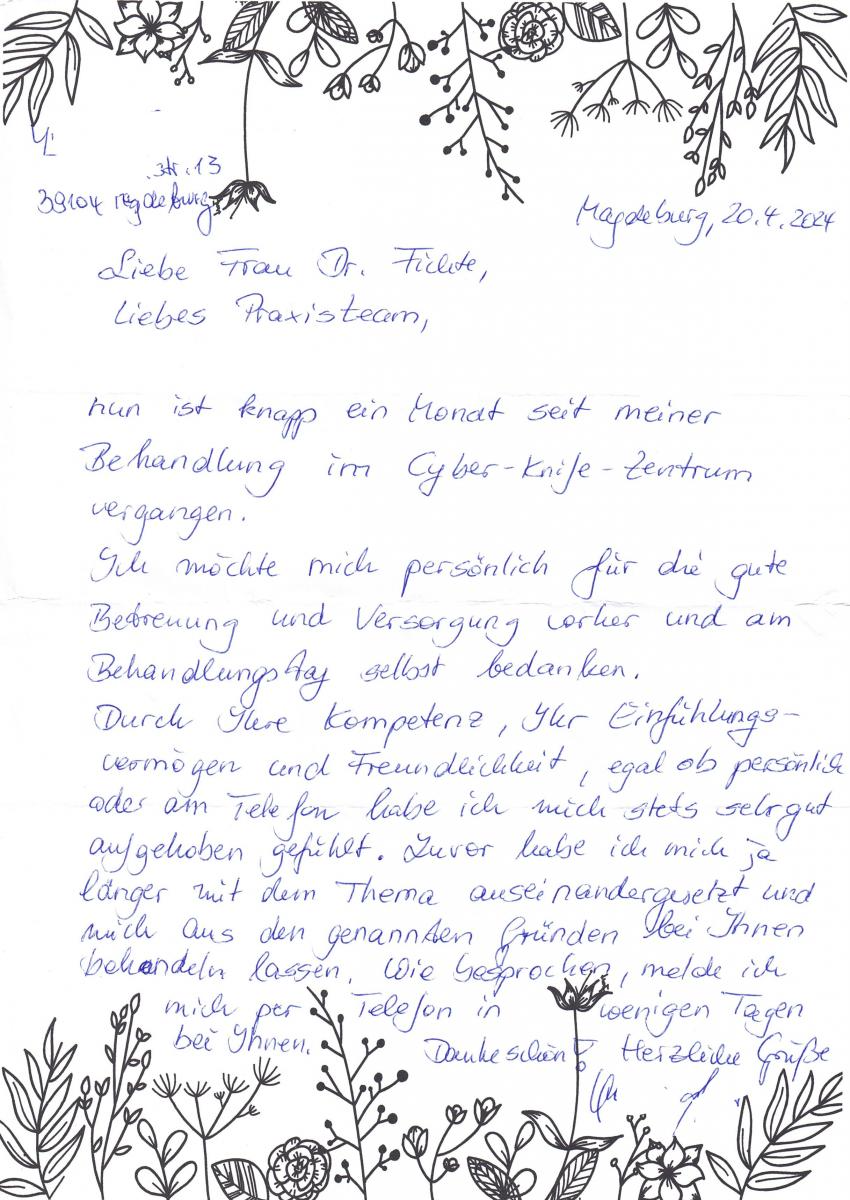 str. 13
39104 Magdeburg
Magdeburg, 20.4.2024
Liebe Frau Dr. Fichte,
Liebes Praxisteam,
nun ist knapp ein Monat seit meiner
Behandlung im Cyber-Knife-Zentrum
vergangen.
Ich möchte mich persönlich für die gute
Betreuung und Versorgung vorher und am
Behandlungstag selbst bedanken.
Durch Ihre Kompetenz, Ihr Einfühlungs-
vermögen und Freundlichkeit, egal ob persönlich
oder am Telefon habe ich mich stets sehr gut
aufgehoben gefühlt. Zuvor habe ich mich ja
länger mit dem Thema auseinandergesetzt und
mich aus den genannten Gründen bei Ihnen
behandeln lassen. Wie besprochen, melde ich
mich per Telefon in wenigen Tagen
bei Ihnen. Dankeschön! Herzliche Grüße